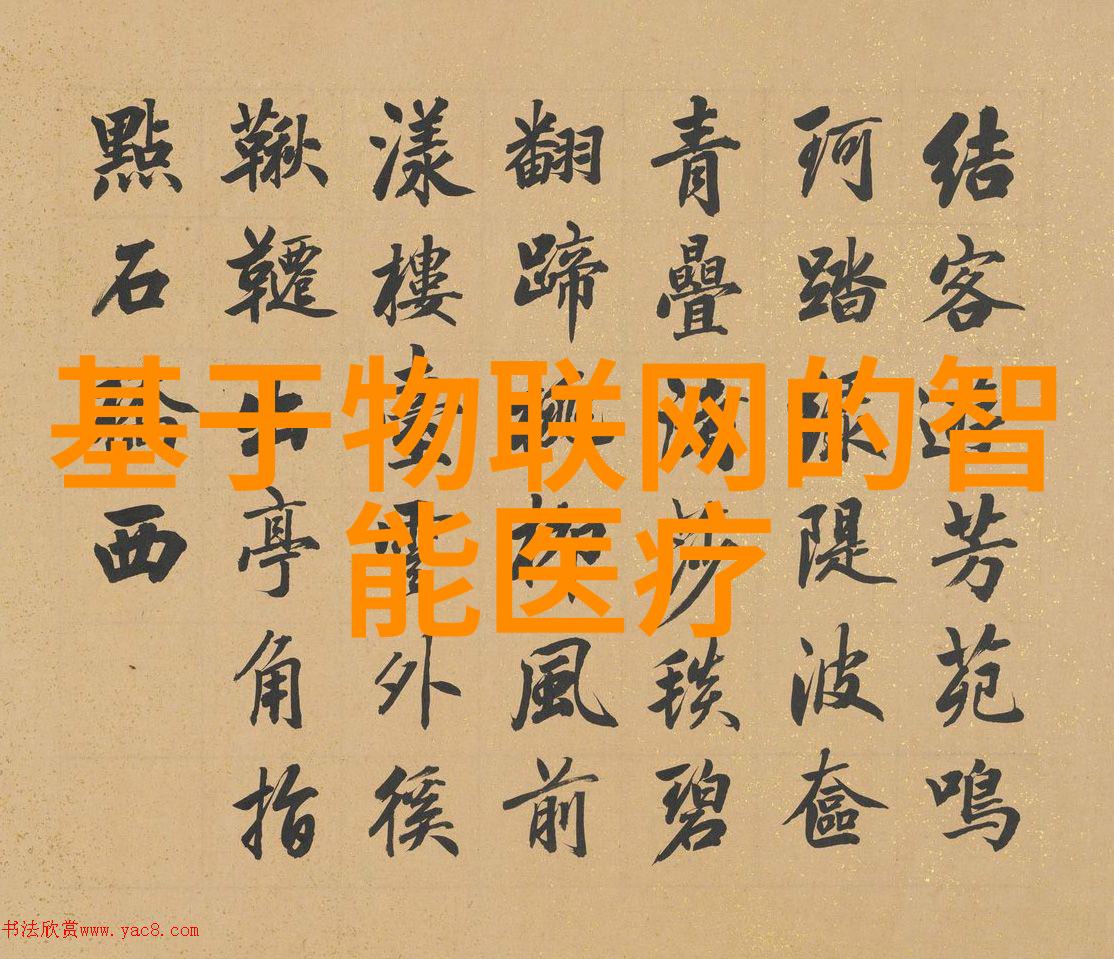 結客芳苑鳴
珂踏隄波奩
青疊莎毯碧
翻蹄柳風前
漾樓臺外徯
鞦韆出亭角指
點石西
基于物联网的智
能医疗
书法欣赏www.yac8.com